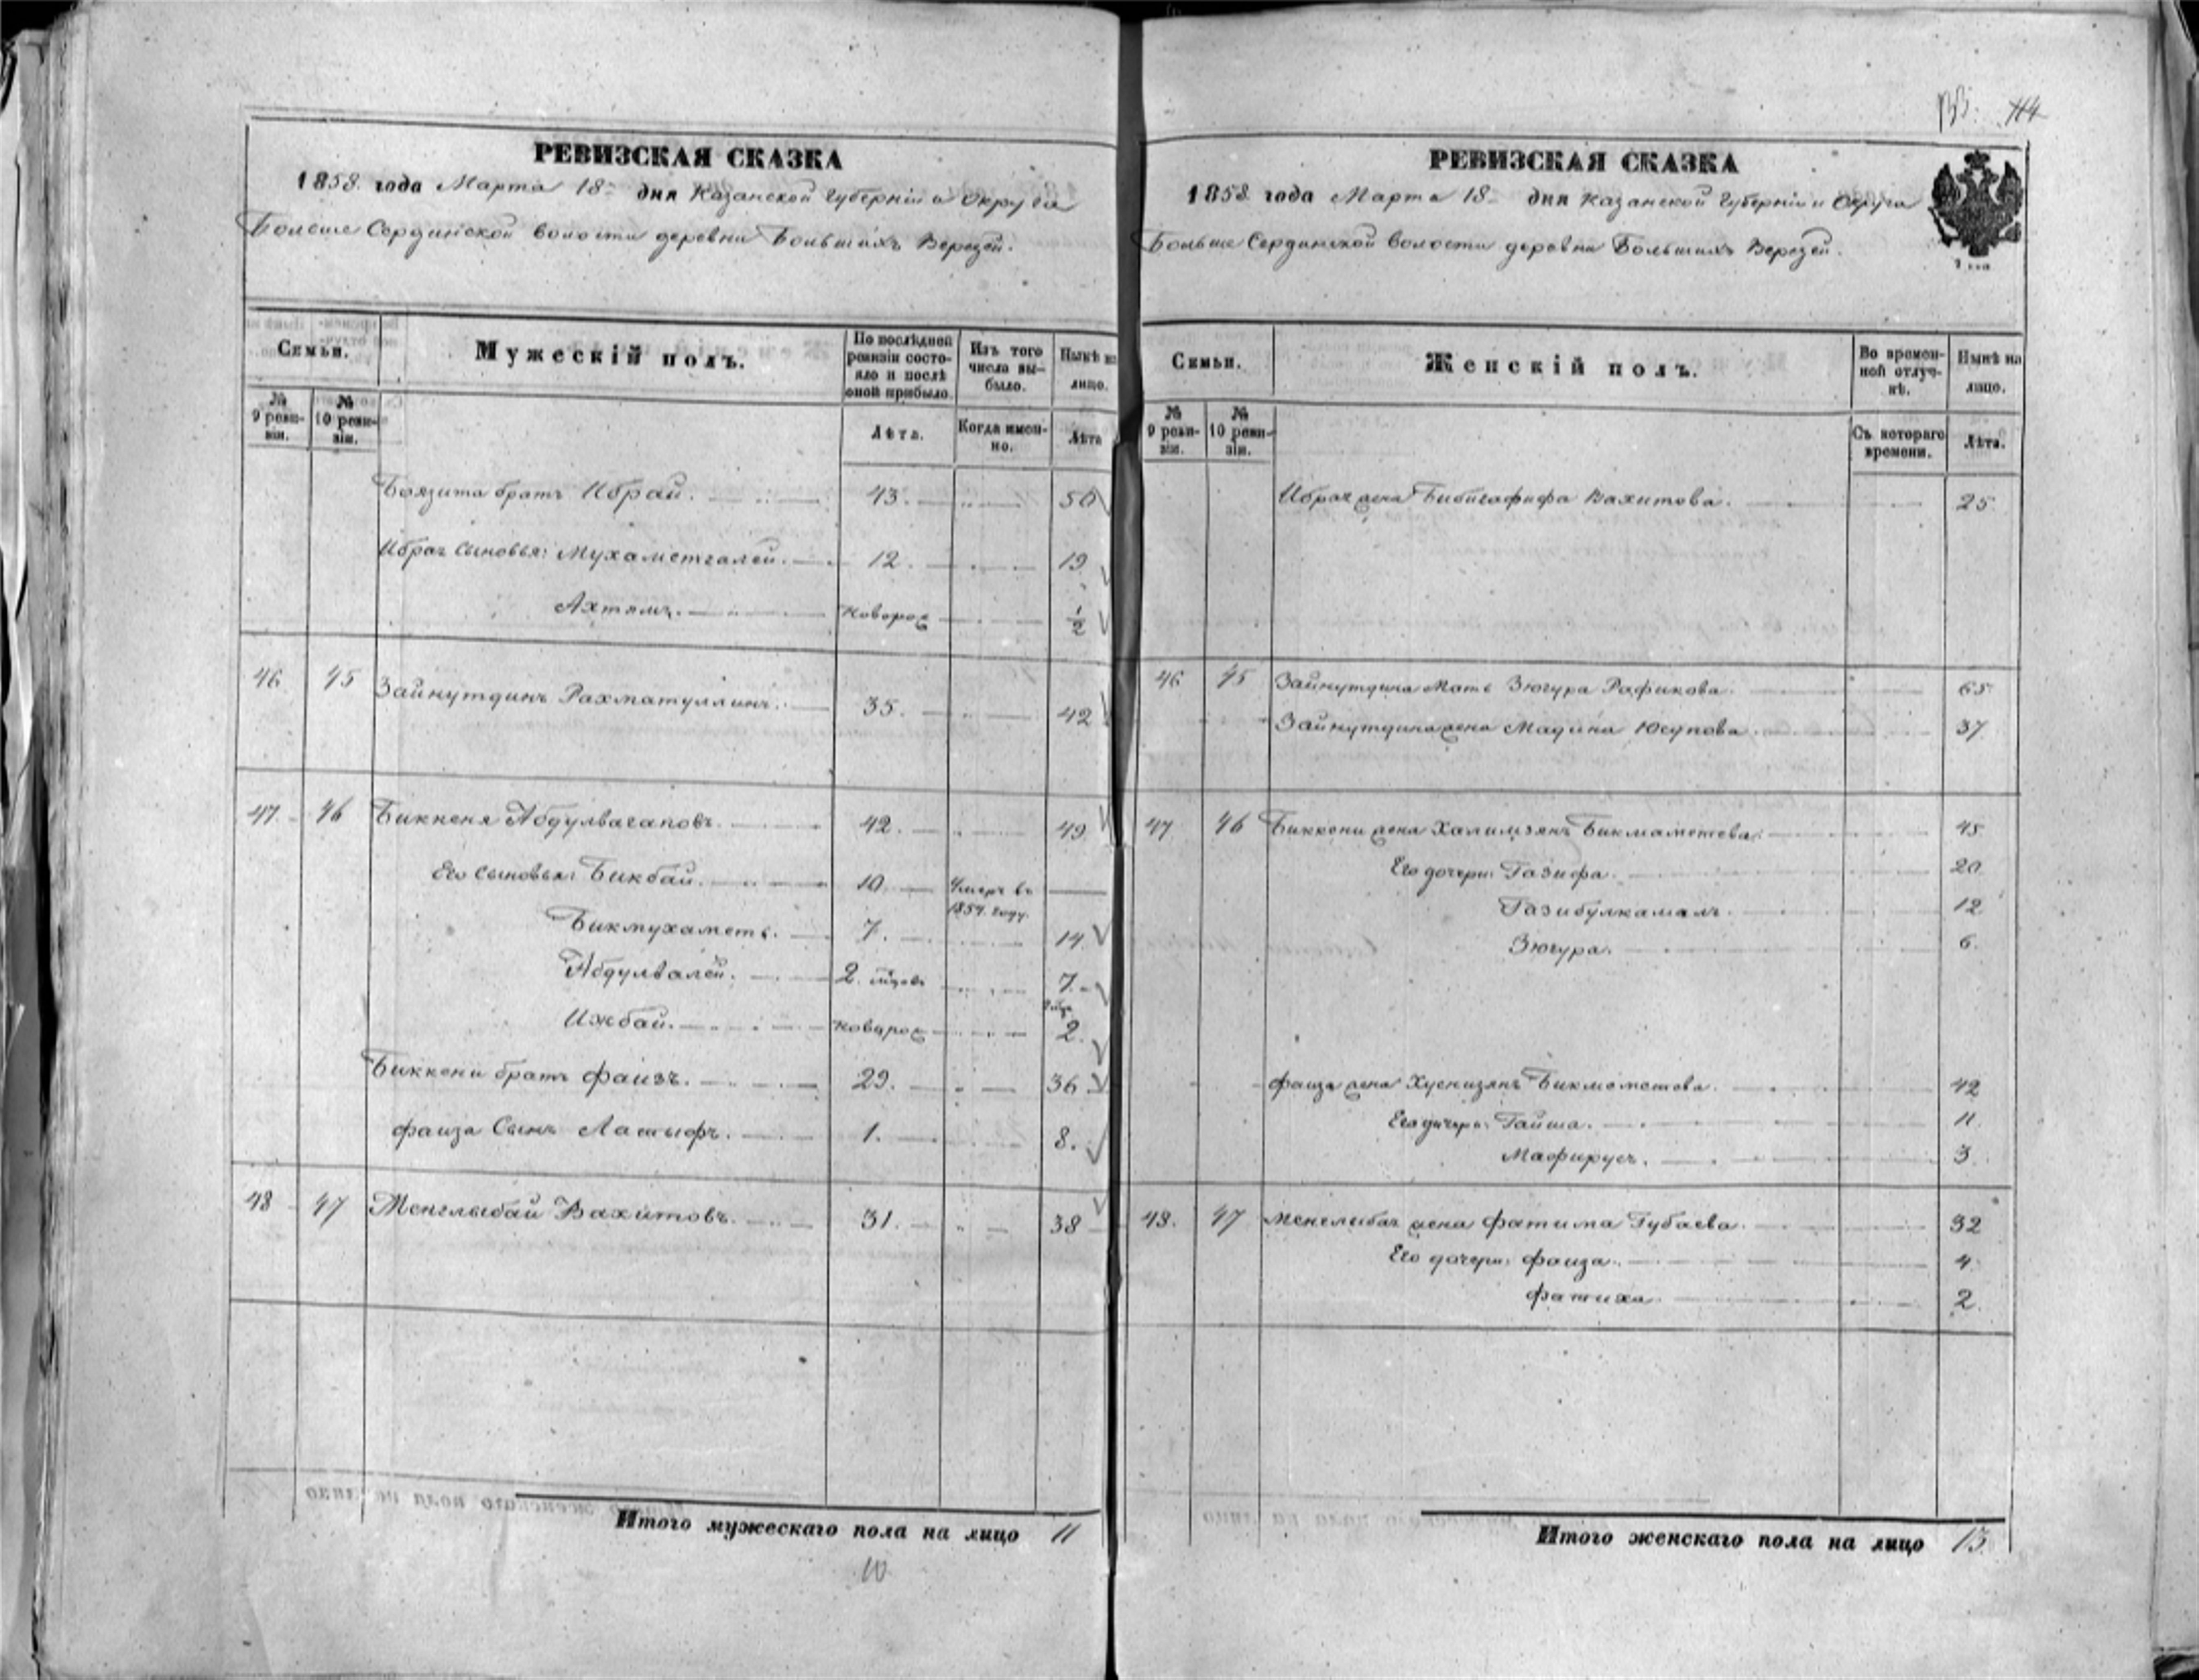 РЕВИЗСКАЯ СКАЗКА
1858. года Марта 18 дня Казанской губерніи и округа
Больше Сердинской волости деревни Большихъ Верезей.
Семьи.
Мужескій полъ.
По послѣдней ревизіи состояло и послѣ оной прибыло.
Изъ того числа выбыло.
Нынѣ на лицо.
№ 9 ревизіи.
№ 10 ревизіи.
Лѣта.
Когда именно.
Лѣта
Боязита братъ Ибрай. 43. 50
Ибрая сыновья: Мухаметгалей. 12. 19
Ахтямъ. новорож 1/2
46 45 Зайнутдинъ Рахматуллинъ. 35. 42
47 46 Биккеня Абдулвагаповъ. 42. 49
Его сыновья: Бикбай. 10. Умеръ въ 1854. году.
Бикмухаметь. 7. 14
Абдулвалей. 2. 7.
Ижбай. новорож 2.
Биккени братъ Фаизъ. 29. 36
Фаиза Сынъ Латыфъ. 1. 8.
48 47 Менглыбай Вахитовъ. 31. 38
Итого мужескаго пола на лицо 11
10
114
РЕВИЗСКАЯ СКАЗКА
1858. года Марта 18 дня Казанской Губерніи и Округа
Больше Сердинской волости деревни Большихъ Верезей.
Семьи.
Женскій полъ.
Во временной отлучкѣ.
Нынѣ на лицо.
№ 9 ревизіи.
№ 10 ревизіи.
Съ котораго времени.
Лѣта.
Ибрая жена Бибигафифа Вахитова. 25
46 45 Зайнутдина Мать Зюгура Рафикова. 65
Зайнутдина жена Мадина Юсупова. 37
47 46 Биккени жена Халимзянъ Бикмаметева. 45
Его дочери: Газифа. 20
Газибулкамалъ. 12
Зюгура. 6.
Фаиза жена Хуснизянъ Бикмаметева. 42
Его дочери: Гайша. 11.
Мафирузъ. 3
48. 47 Менглыбая жена Фатима Губаева. 32
Его дочери: Фаиза. 4
Фатиха. 2.
Итого женскаго пола на лицо 13